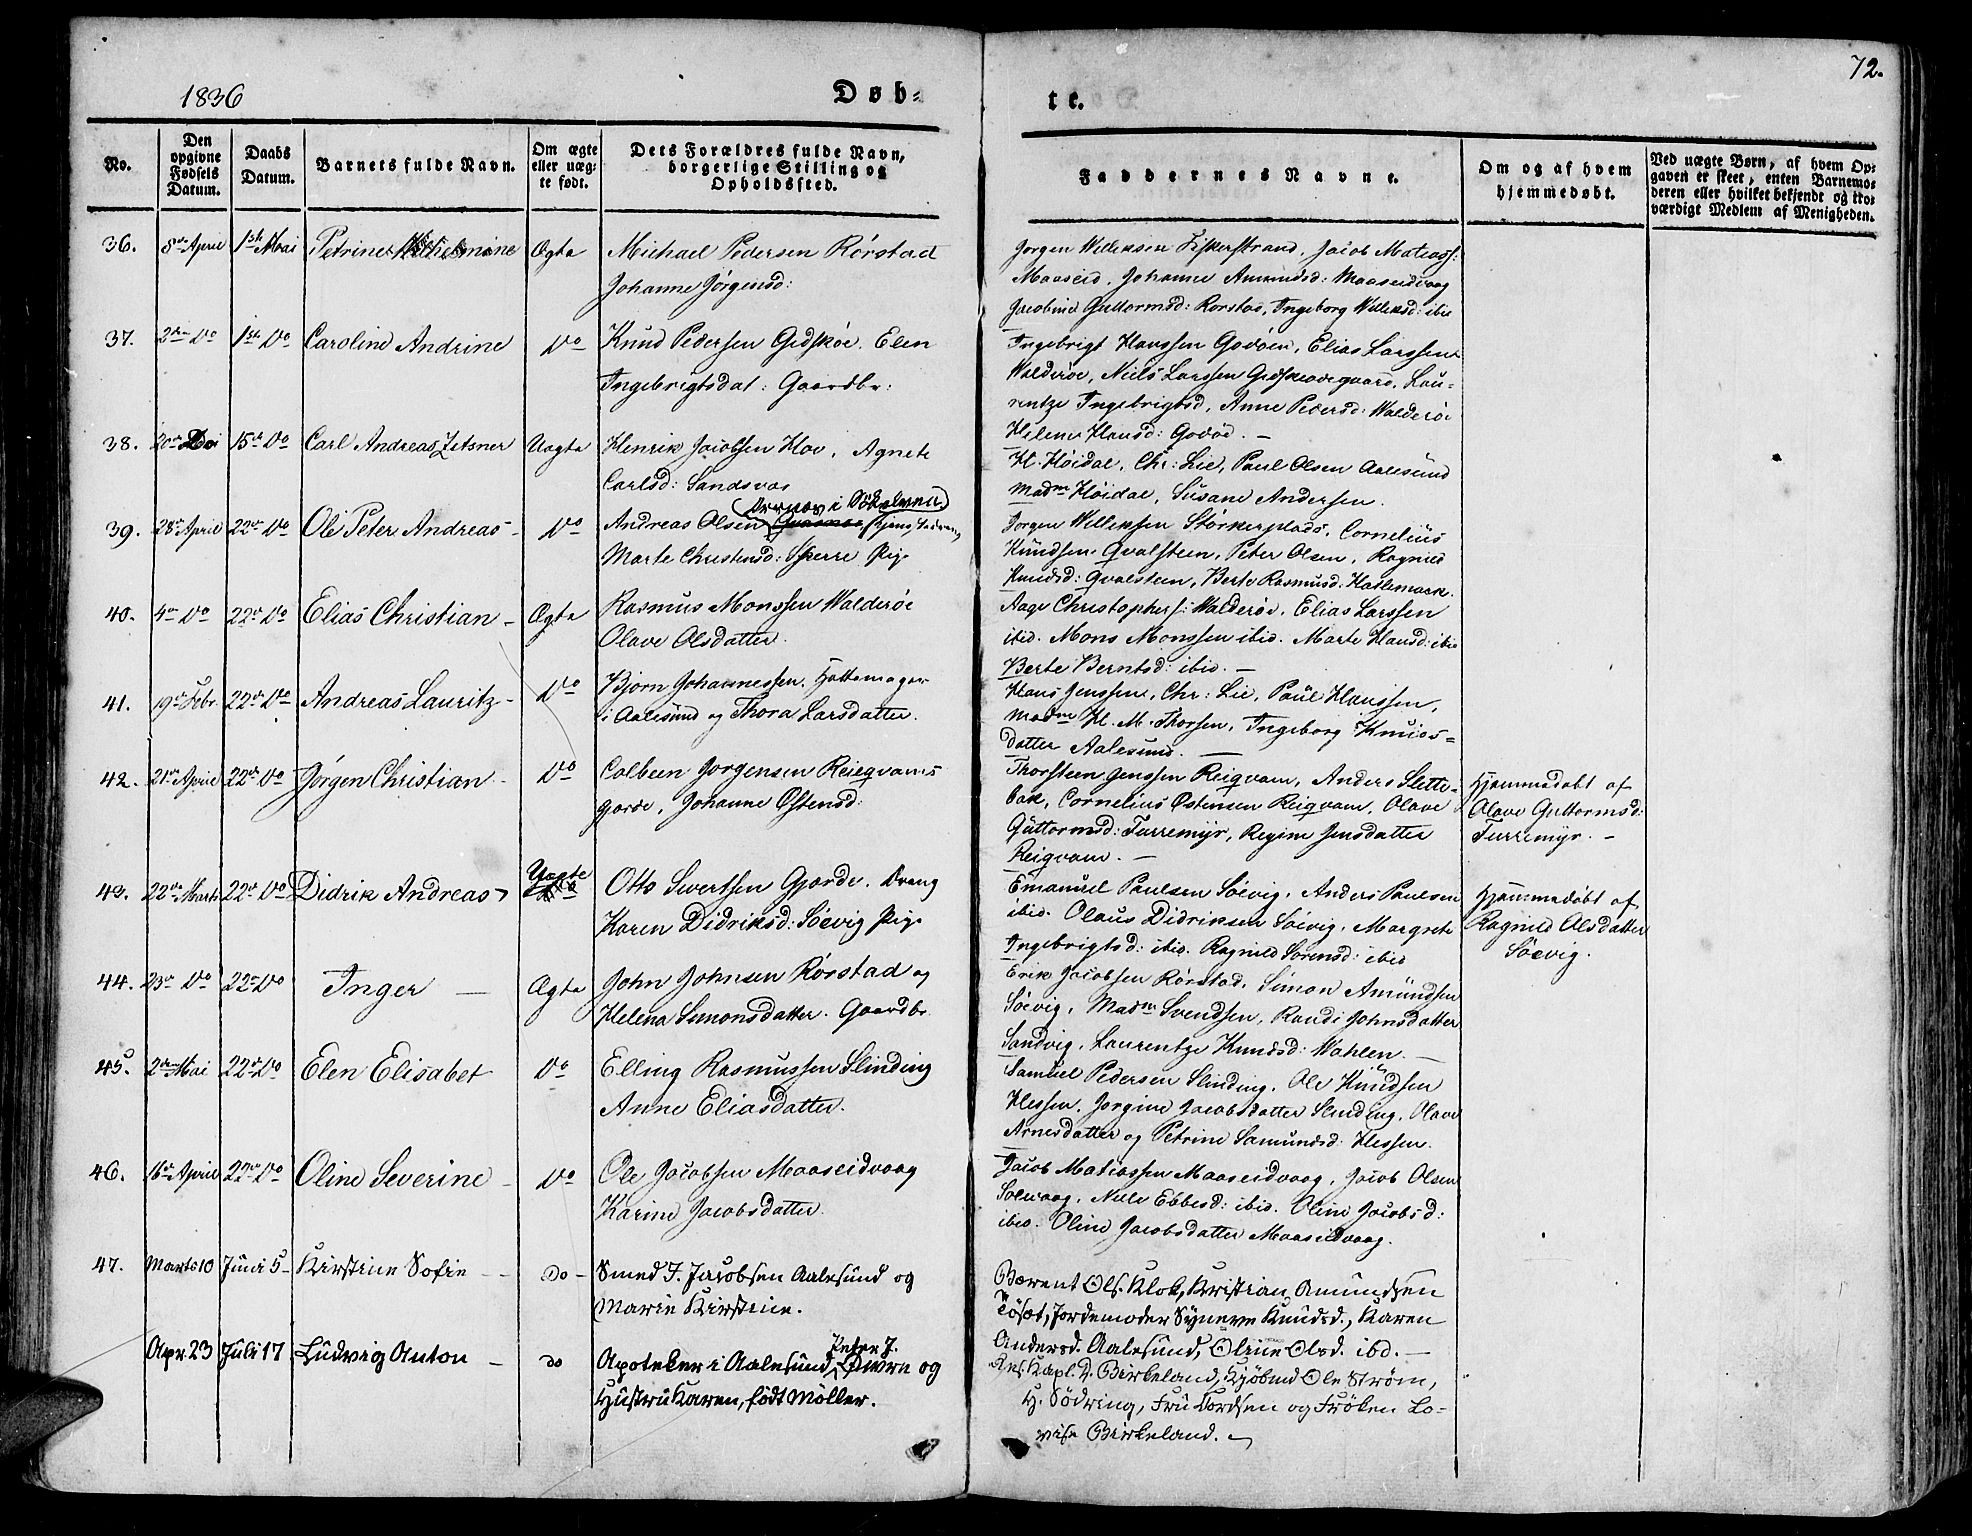 72.
1836
Døb-
te.
No.
Den opgivne Fødsels Datum.
Daabs Datum.
Barnets fulde Navn.
Om ægte eller uægte født.
Dets Forældres fulde Navn, borgerlige Stilling og Opholdssted.
Faddernes Navne.
Om og af hvem hjemmedøbt.
Ved uægte Børn, af hvem Opgaven er skeet, enten Barnemoderen eller hvilket bekjendt og troværdigt Medlem af Menigheden.
36. 8de April 1ste Mai Petrine Willielmine Ægte Michael Pedersen Rörstad
Johanne Jörgensd:
Jörgen Willeksen Fiskerstrand, Jacob Matiass:
Maaseid, Johanne Amundsd: Maaseidvaag
Jacobine Guttormsd: Rorstad, Ingeborg Willeksd: ibid
37. 2den Do 1ste Do Caroline Andrine Do Knud Pedersen Gidsköe. Elen
Ingebrigtsdat: Gaardbr:
Ingebrigt Hanssen Godöen, Elias Larssen
Walderöe, Niels Larssen Gidskeodegaard, Lau-
rentze Ingebrigtsd, Anne Pedersd: Walderöe
Helene Hansd: Godöe. -
38. 20de 15de Do Carl Andreas Zetsner Uægte Henrik Jacobsen Hov, Agnete
Carlsd: Sandsvas
H. Höidal, Chr: Lie, Paul Olsen Aalesund
Madm Höidal, Susane Andersen.
39. 28de April 22de Do Ole Peter Andreas - Do Andreas Olsen tjens. Dreng,
Marte Christensd: Skerre Pige
Jörgen Willeksen Störkerplads, Cornelius
Knudsen Qvalsteen, Peter Olsen, Ragnild
Knudsd: Qvalsteen, Berte Rasmusd. Hatlemark.
40. 4de Do 22de Do Elias Christian - Ægte Rasmus Monssen Walderöe
Olave Olsdatter.
Aage Christophers: Walderöe, Elias Larssen
ibid. Mons Monssen ibid. Marte Hansd: ibid
Berte Berntsd: ibid. -
41. 19de Febr 22de Do Andreas Lauritz - Do Bjorn Johannessen, Hattemager
i Aalesund og Thora Larsdatter.
Hans Jenssen, Chr: Lie, Paul Hanssen,
Madm H. M. Thorsen, Ingeborg Knuds-
datter Aalesund. -
42. 21de April 22de Do Jörgen Christian - Do Colbeen Jorgensen Reiqvams
gjorde, Johanne Östensd:
Thorsteen Jenssen Reiqvam, Anders Slette-
bak, Cornelius Östensen Reiqvam, Olave
Guttormsd: Furremyr, Regine Jensdatter
Reiqvam. -
Hjemmedøbt af
Olave Guttormsd:
Furremyr. -
43. 22de Marts 22de Do Didrik Andreas Uægte Otto Sivertsen Gjorde. Dreng
Karen Didriksd: Söevig Pige
Emanuel Paulsen Söevig, Anders Paulsen
ibid. Olaus Didriksen Söevig, Margrete
Ingebrigtsd: ibid. Ragnild Sorensd: ibid
Hjemmedøbt af
Ragnild Olsdatter
Söevig.
44. 23de Do 22de Do Inger - Ægte John Johnsen Rörstad og
Helena Simonsdatter. Gaardbr.
Erik Jacobsen Rörstad, Simon Amundsen
Söevig, Madm Svendsen, Randi Johnsdatter
Sandvig, Laurentze Knudsd: Wahlen. -
45. 2den Mai 22de Do Elen Elisabet Do Elling Rasmussen Slinding
Anne Eliasdatter.
Samuel Pedersen Slinding, Ole Knudsen
Hessen, Jorgine Jacobsdatter Slinding, Olave
Arnesdatter og Petrine Samundsd: Hessen.
46. 16de April 22de Do Oline Severine - Do Ole Jacobsen Maaseidvaag
Karine Jacobsdatter.
Jacob Matiassen Maaseidvaag, Jacob Olsen
Solevaag, Nille Ebbesd: ibid. Oline Jacobsd:
ibid. Oline Jacobsdatter Maaseidvaag.
47. Marts 10 Juni 5 - Kirstine Sofie - - Do - Smed J. Jacobsen Aalesund og
Marie Kirstine.
Bærent Ols. Klok, Kristian Amundsen
Tösæt, Jordemoder Synneve Knudsd., Karen
Andersd. Aalesund, Oline Olsd. ibd. -
Apr. 23 Juli 17 Ludvig Anton - do Apoteker i Aalesund, Peter J. og
Hustru Karen, født Møller.
Res. Kapl. D. Birkeland, Kjöbmd Ole Ström,
H. Södring, Fru Tordsen og Fröken Lo-
vise Birkeland. -